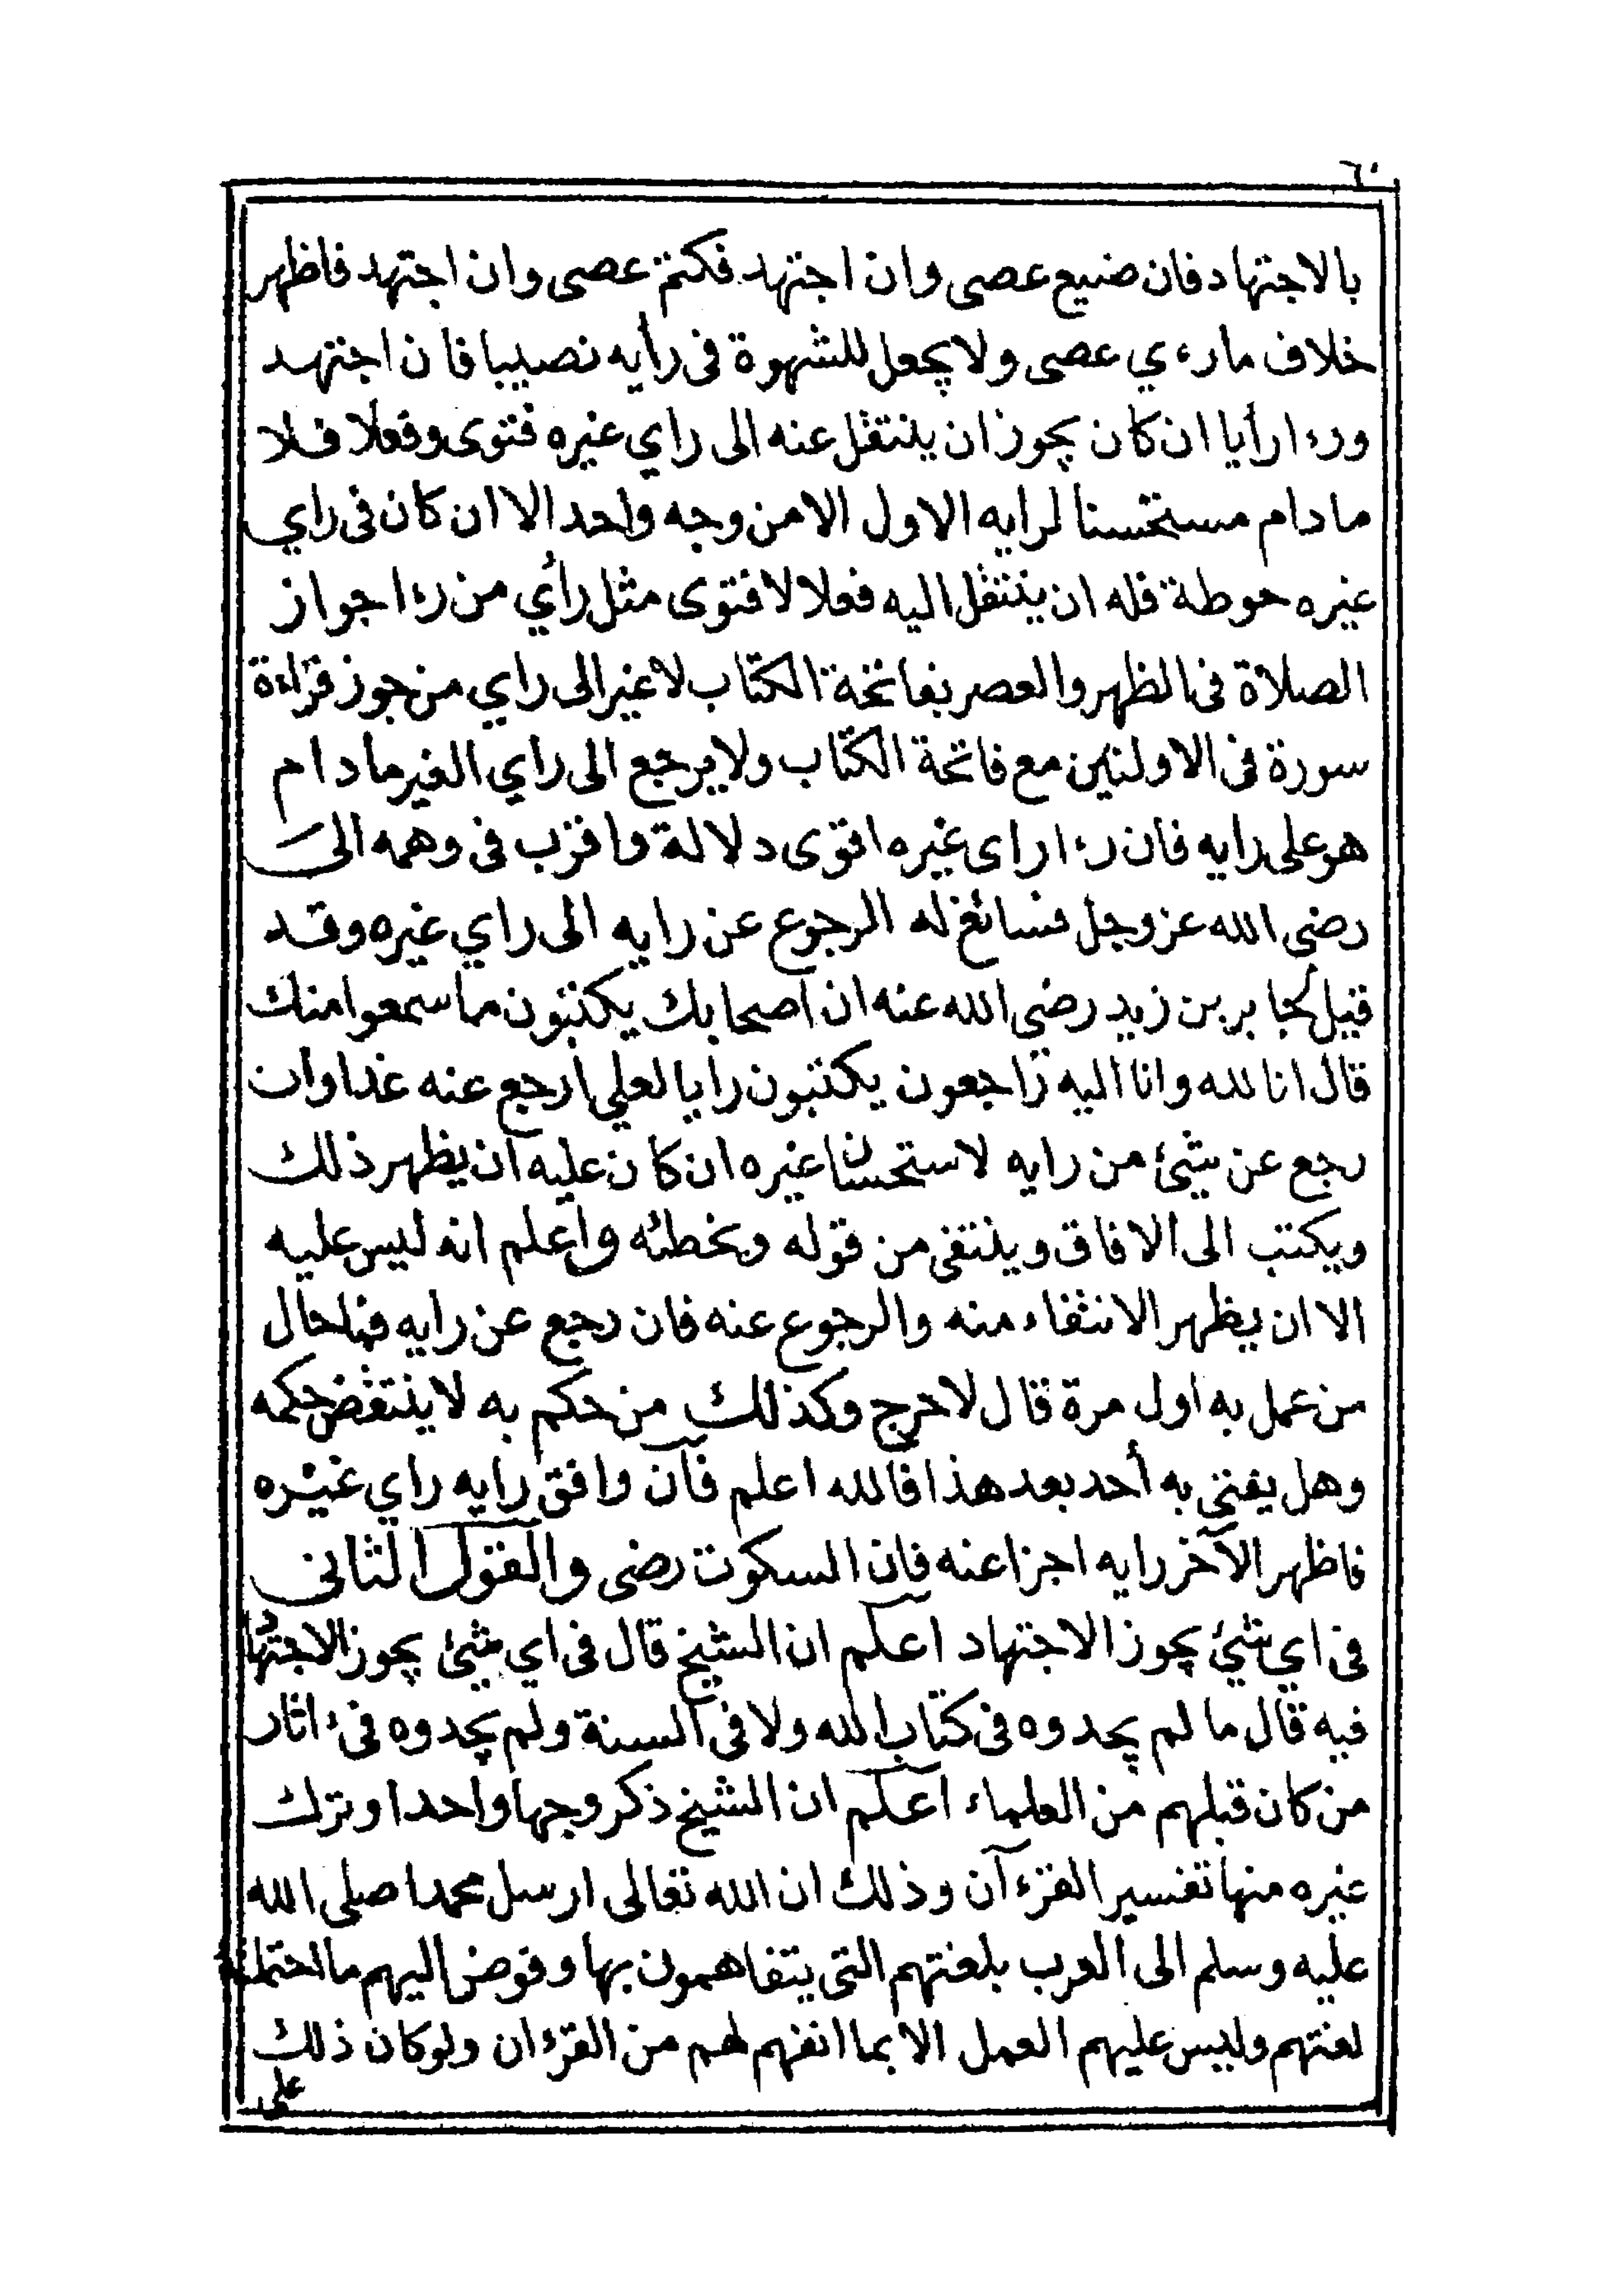 ٦٠
بالاجتهاد فان ضيع عصى وان اجتهد فكتم عصى وان اجتهد فاظهر
خلاف ما رءي عصى ولا يجعل للشهوة فى رأيه نصيبا فان اجتهد
ورءا رأيا ان كان يجوز ان ينتقل عنه الى راي غيره فتوى وفعلا فلا
ما دام مستحسنا لرايه الاول الا من وجه واحد الا ان كان فى راي
غيره حوطة فله ان ينتقل اليه فعلا لا فتوى مثل رأي من رءا جواز
الصلاة فى الظهر والعصر بفاتحة الكتاب لا غير الى راي من جوز قراءة
سورة فى الاولتين مع فاتحة الكتاب ولا يرجع الى راي الغير ما دام
هو على رايه فان رءا راى غيره اقوى دلالة واقرب فى وهمه الى
رضى الله عز وجل فسائغ له الرجوع عن رايه الى راي غيره وقد
قيل لجابر بن زيد رضى الله عنه ان اصحابك يكتبون ما سمعوا منك
قال انا لله وانا اليه راجعون يكتبون رايا لعلي ارجع عنه غدا وان
رجع عن شيئ من رايه لاستحسان غيره ان كان عليه ان يظهر ذلك
ويكتب الى الافاق وينتفى من قوله ويخطئه واعلم انه ليس عليه
الا ان يظهر الانتفاء منه والرجوع عنه فان رجع عن رايه فما حال
من عمل به اول مرة قال لا حرج وكذلك من حكم به لا ينتقض حكمه
وهل يفتى به أحد بعد هذا فالله اعلم فان وافق رايه راي غيره
فاظهر الآخر رايه اجزا عنه فان السكوت رضى والقول الثانى
فى اي شيئ يجوز الاجتهاد اعلم ان الشيخ قال فى اي شيئ يجوز الاجتهاد
فيه قال ما لم يجدوه فى كتاب الله ولا فى السنة ولم يجدوه فى ءاثار
من كان قبلهم من العلماء اعلم ان الشيخ ذكر وجها واحدا وترك
غيره منها تفسير القرءآن وذلك ان الله تعالى ارسل محمدا صلى الله
عليه وسلم الى العرب بلغتهم التى يتفاهمون بها وفوض اليهم ما احتملته
لغتهم وليس عليهم العمل الا بما انفهم لهم من القرءان ولو كان ذلك
على